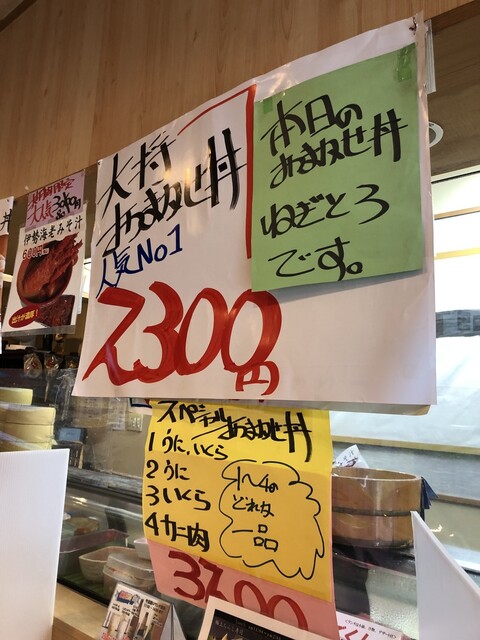 大将
おまかせ丼
人気No1
2300円
本日の
おまかせ丼
ねぎとろ
です。
伊勢海老みそ汁
600円
スペシャルおまかせ丼
1 うに、いくら
2 うに
3 いくら
4 カニ肉
1〜4の
どれか
一品
3700